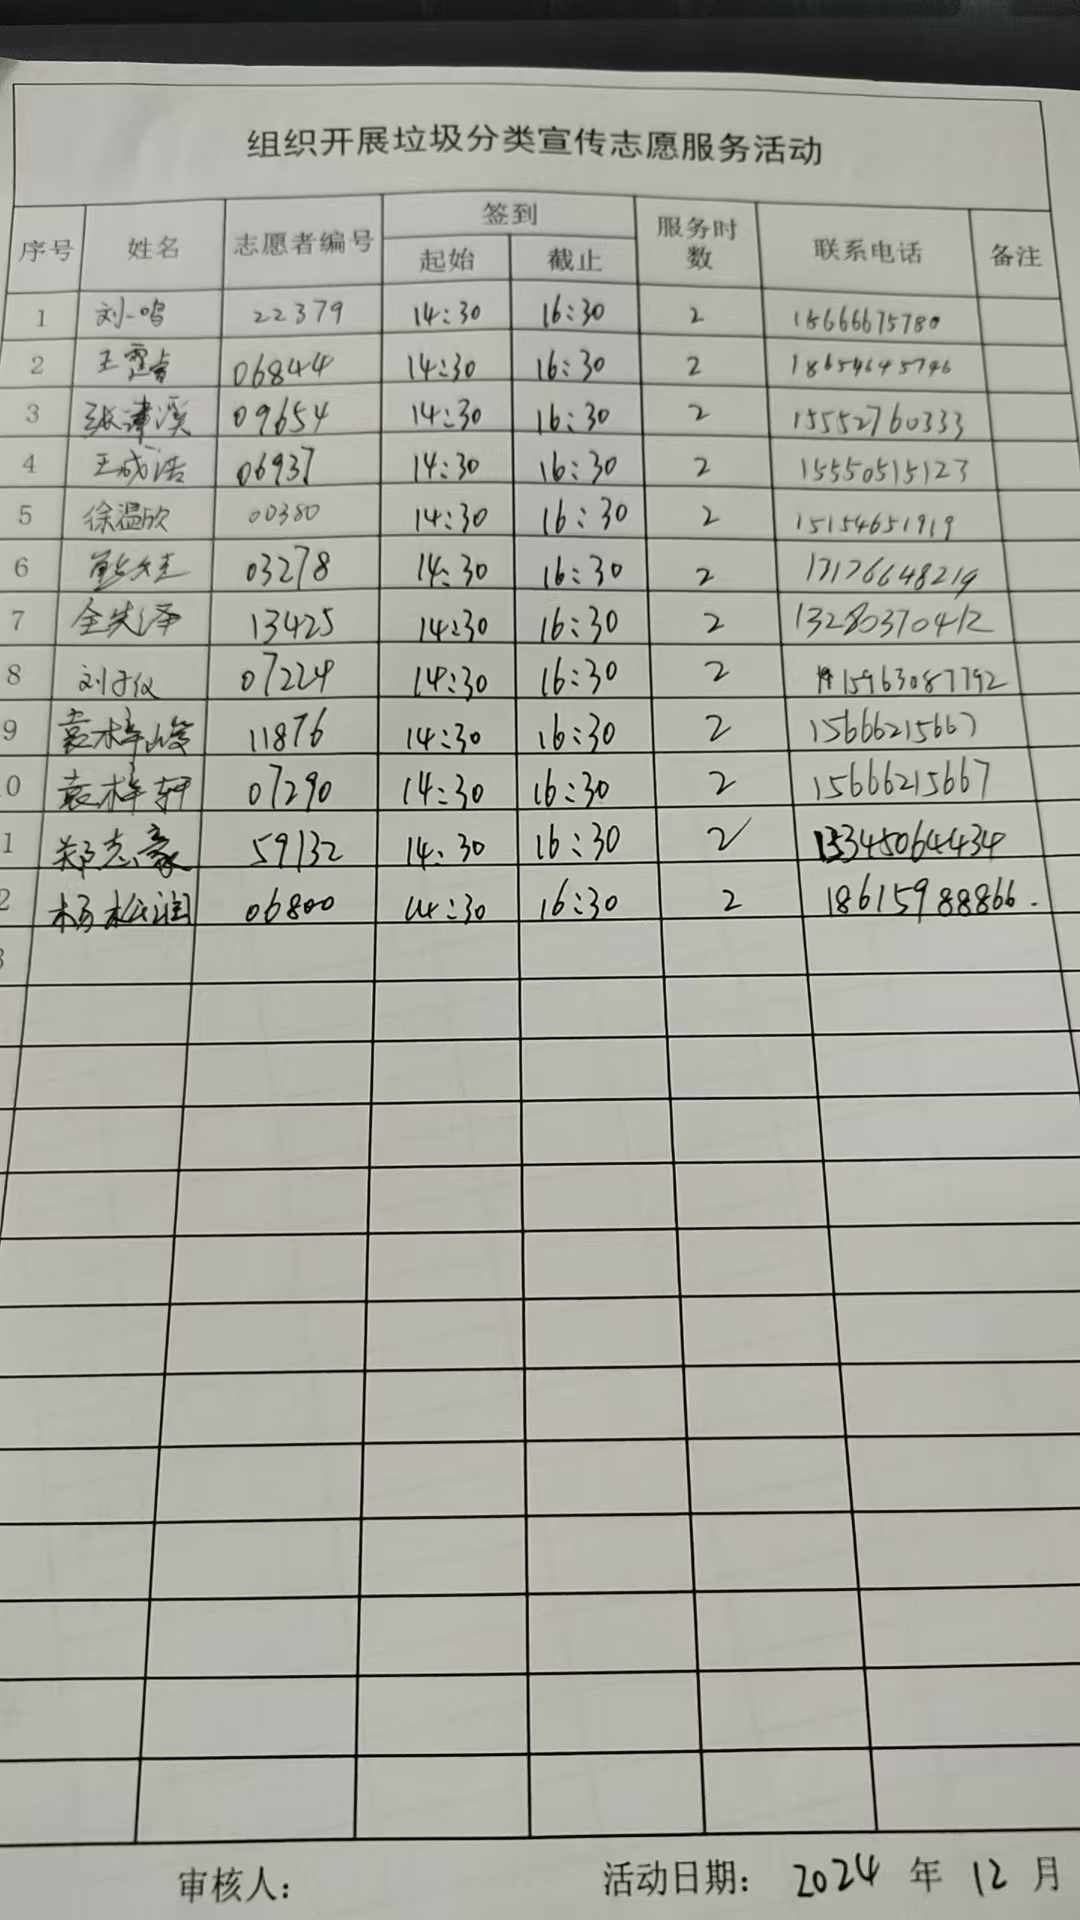 组织开展垃圾分类宣传志愿服务活动
序号 姓名 志愿者编号 签到 服务时数 联系电话 备注
起始 截止
1 刘一鸣 22379 14:30 16:30 2 18666675780
2 王霆睿 06844 14:30 16:30 2 18654645746
3 张津溪 09654 14:30 16:30 2 15552760333
4 王成浩 06937 14:30 16:30 2 15550515123
5 徐温欣 00380 14:30 16:30 2 15154651919
6 03278 14:30 16:30 2 13176648219
7 泽 13425 14:30 16:30 2 13280370412
8 刘子仪 07224 14:30 16:30 2 15963087792
9 袁梓峻 11876 14:30 16:30 2 15666215667
0 袁梓轩 07290 14:30 16:30 2 15666215667
1 郑志豪 59132 14:30 16:30 2 15345064434
2 杨松润 06800 14:30 16:30 2 18615988866.
3
审核人: 活动日期: 2024 年 12 月